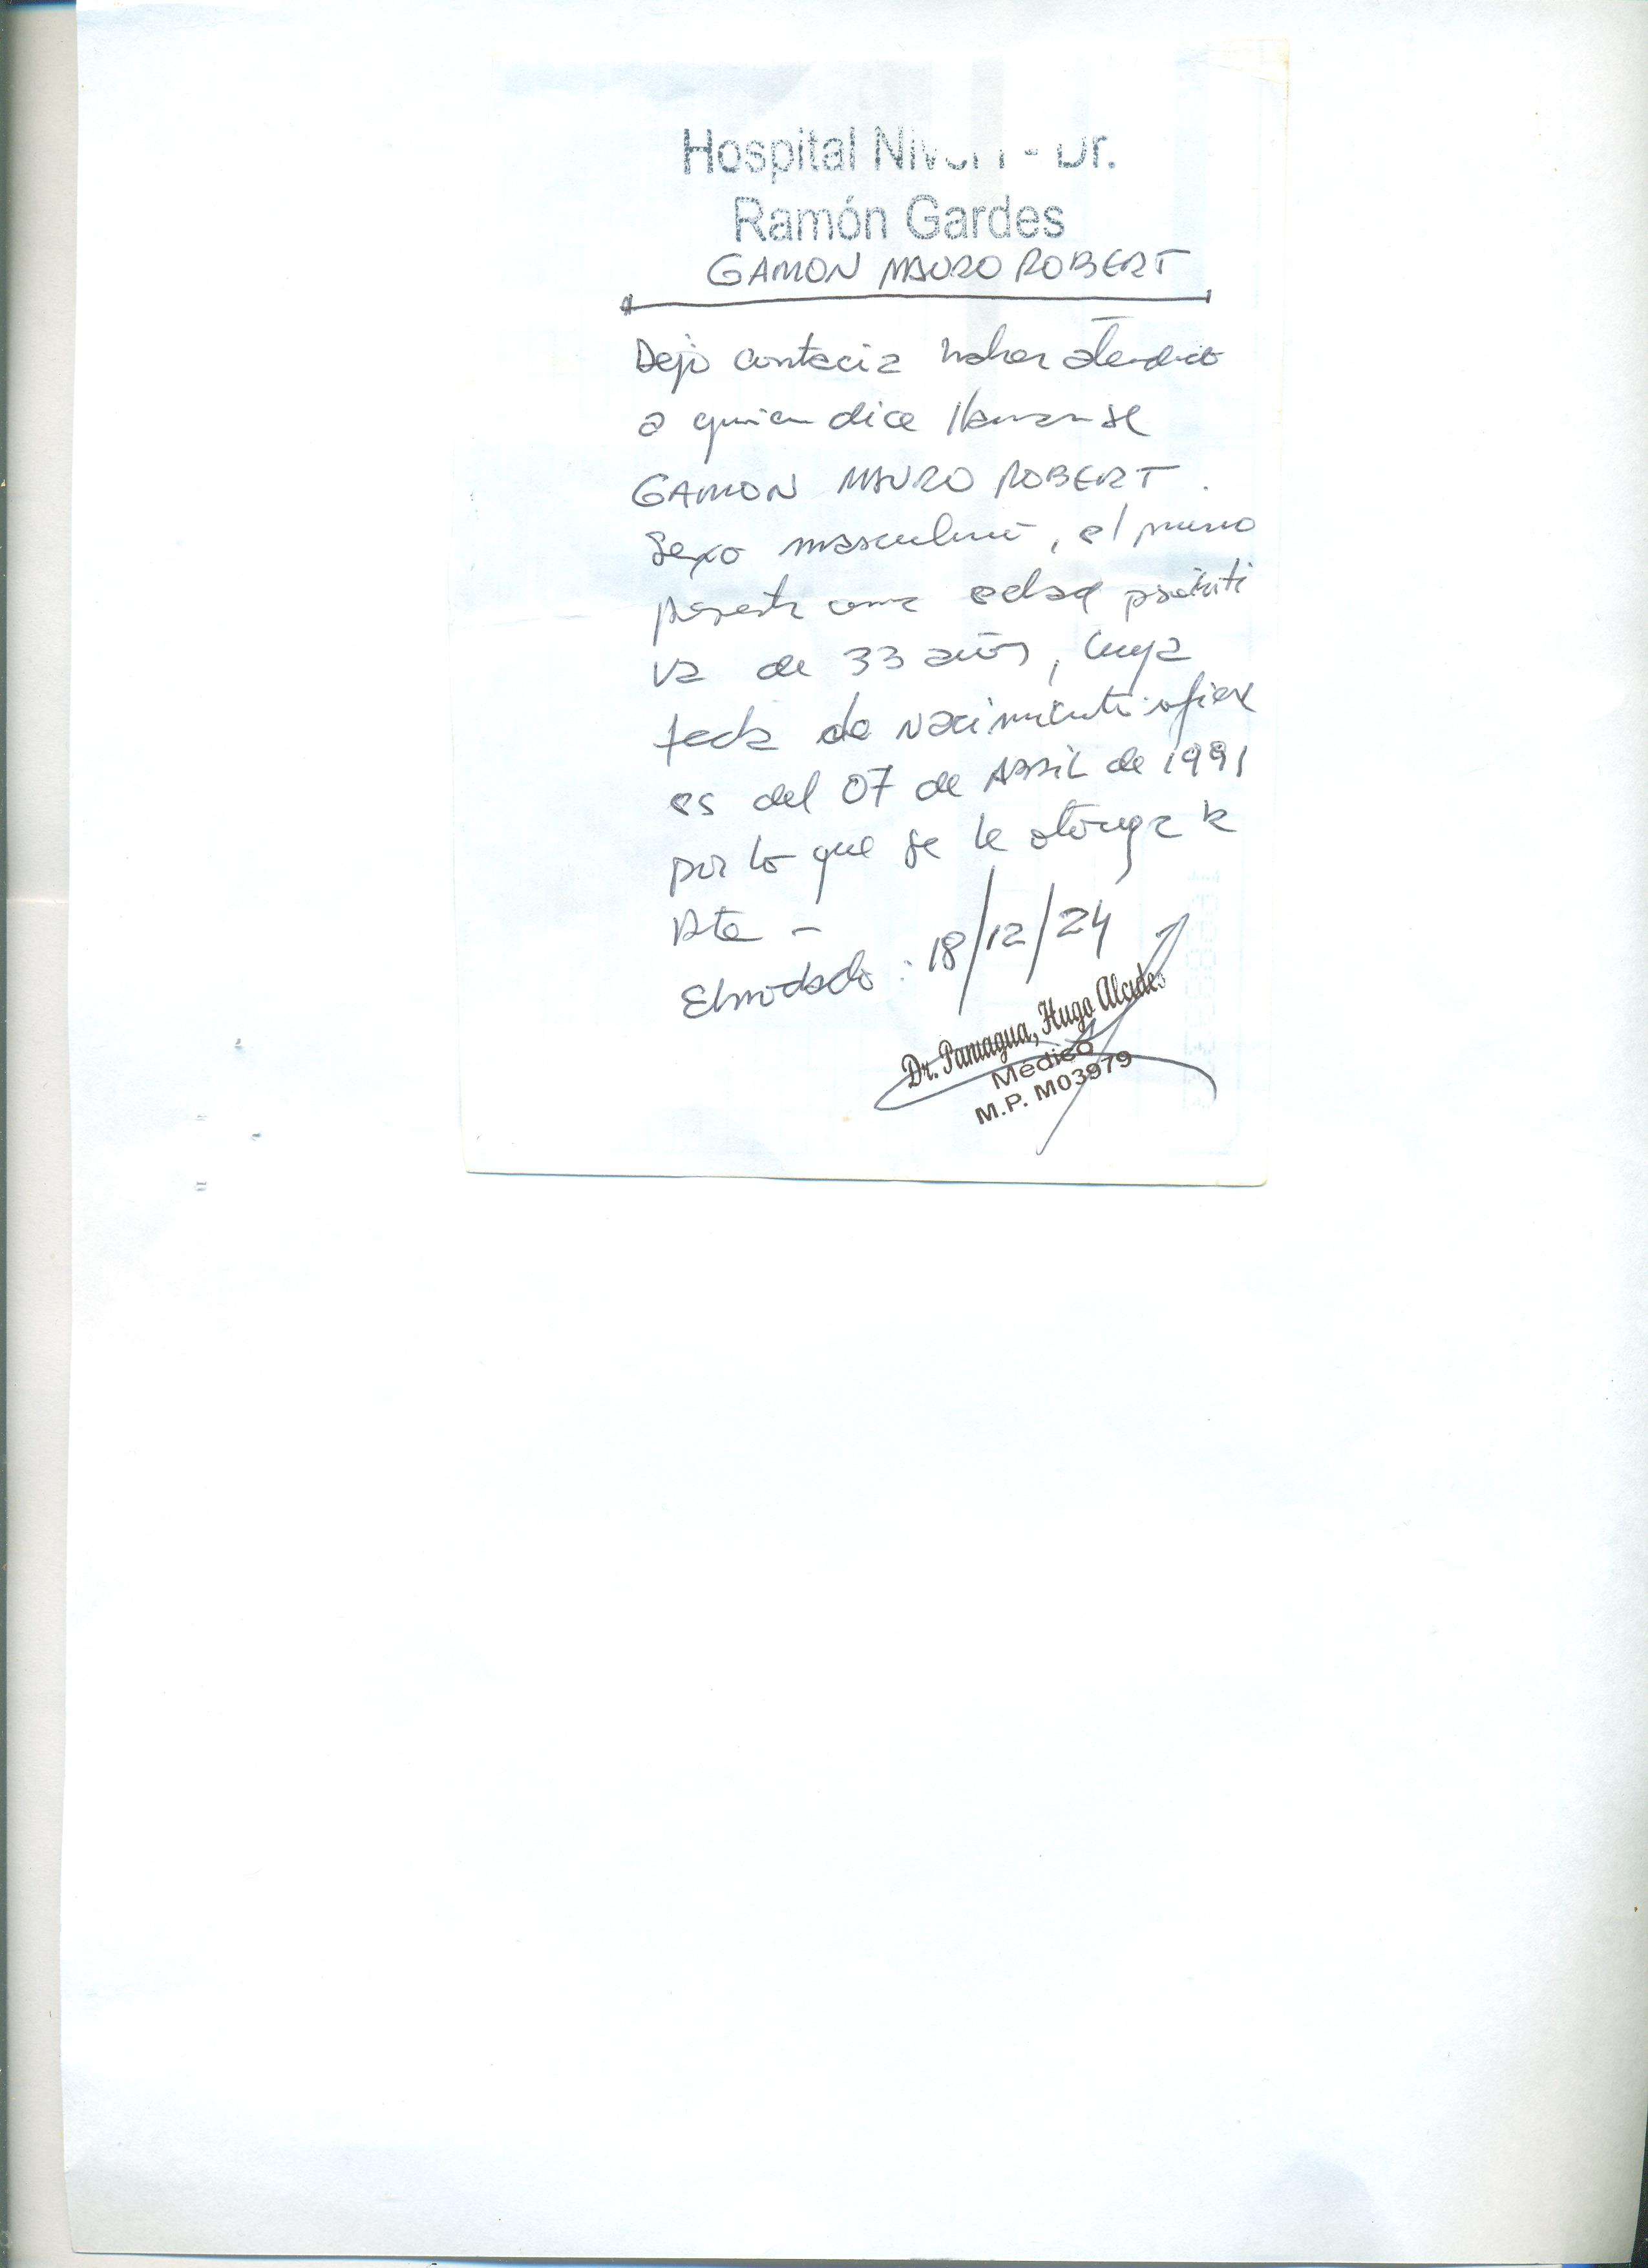 Hospital Nivel I - Dr.
Ramón Gardes
GAMON MAURO ROBERT
Dejo contacia haber atendido
a quien dice llamarse
GAMON MAURO ROBERT.
Sexo masculino, el mismo
presenta como edad
va de 33 años, cuya
fecha de nacimiento
es del 07 de ABRIL de 1991
por lo que se le otorga la
: 18/12/24
Dr. Paniagua, Hugo Alcides
Médico
M.P. M03979